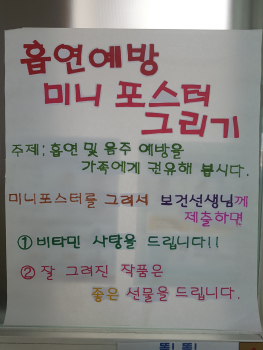 흡연예방
미니 포스터
그리기
주제: 흡연 및 음주 예방을
가족에게 권유해 봅시다.
미니포스터를 그려서 보건선생님께
제출하면
① 비타민 사탕을 드립니다!!
② 잘 그려진 작품은
좋은 선물을 드립니다.